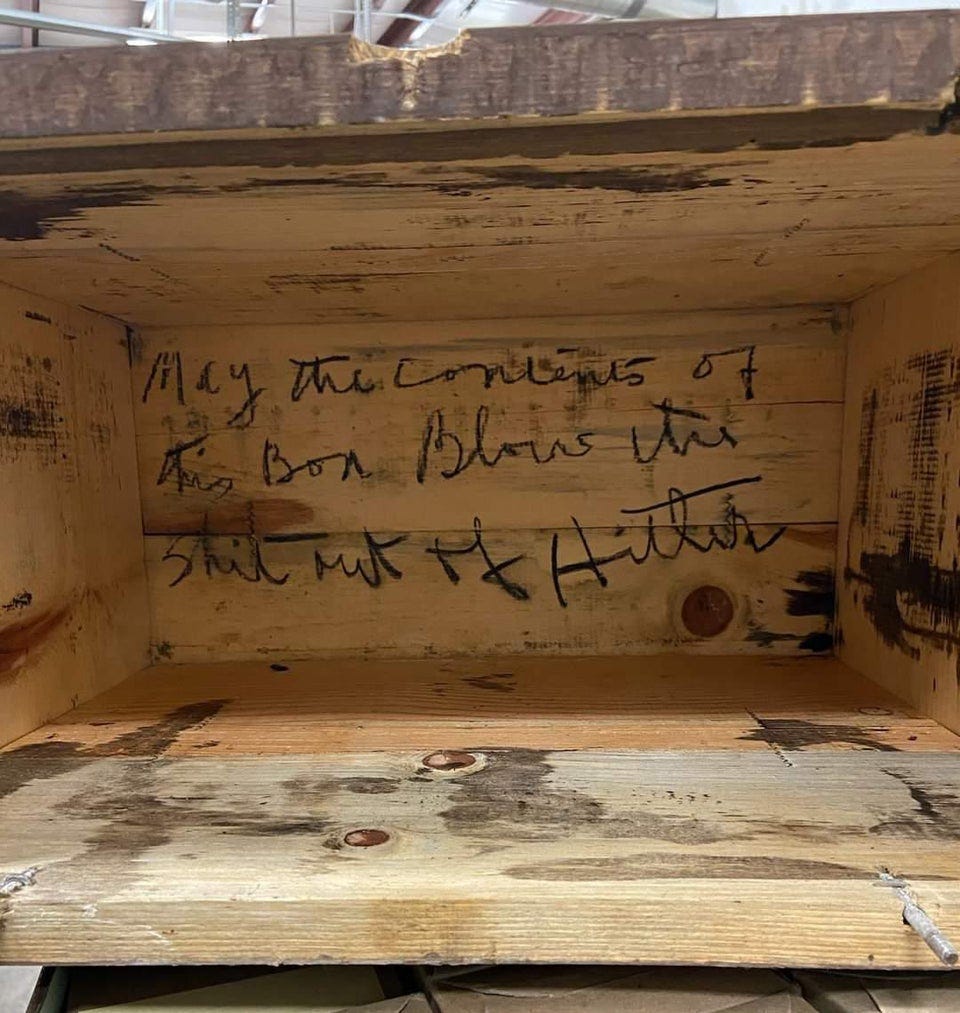 May the contents of
this Box Blow the
Shit out of Hitler